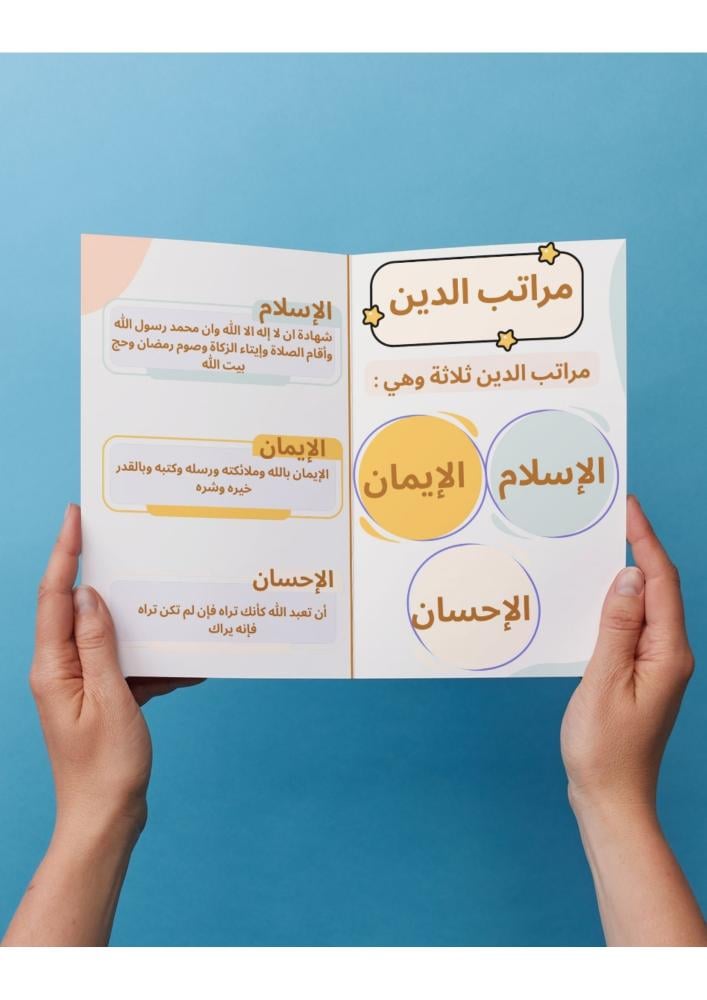 مراتب الدين
مراتب الدين ثلاثة وهي :
الإسلام
الإيمان
الإحسان
الإسلام
شهادة ان لا إله الا الله وان محمد رسول الله
وأقام الصلاة وإيتاء الزكاة وصوم رمضان وحج
بيت الله
الإيمان
الإيمان بالله وملائكته ورسله وكتبه وبالقدر
خيره وشره
الإحسان
أن تعبد الله كأنك تراه فإن لم تكن تراه
فإنه يراك